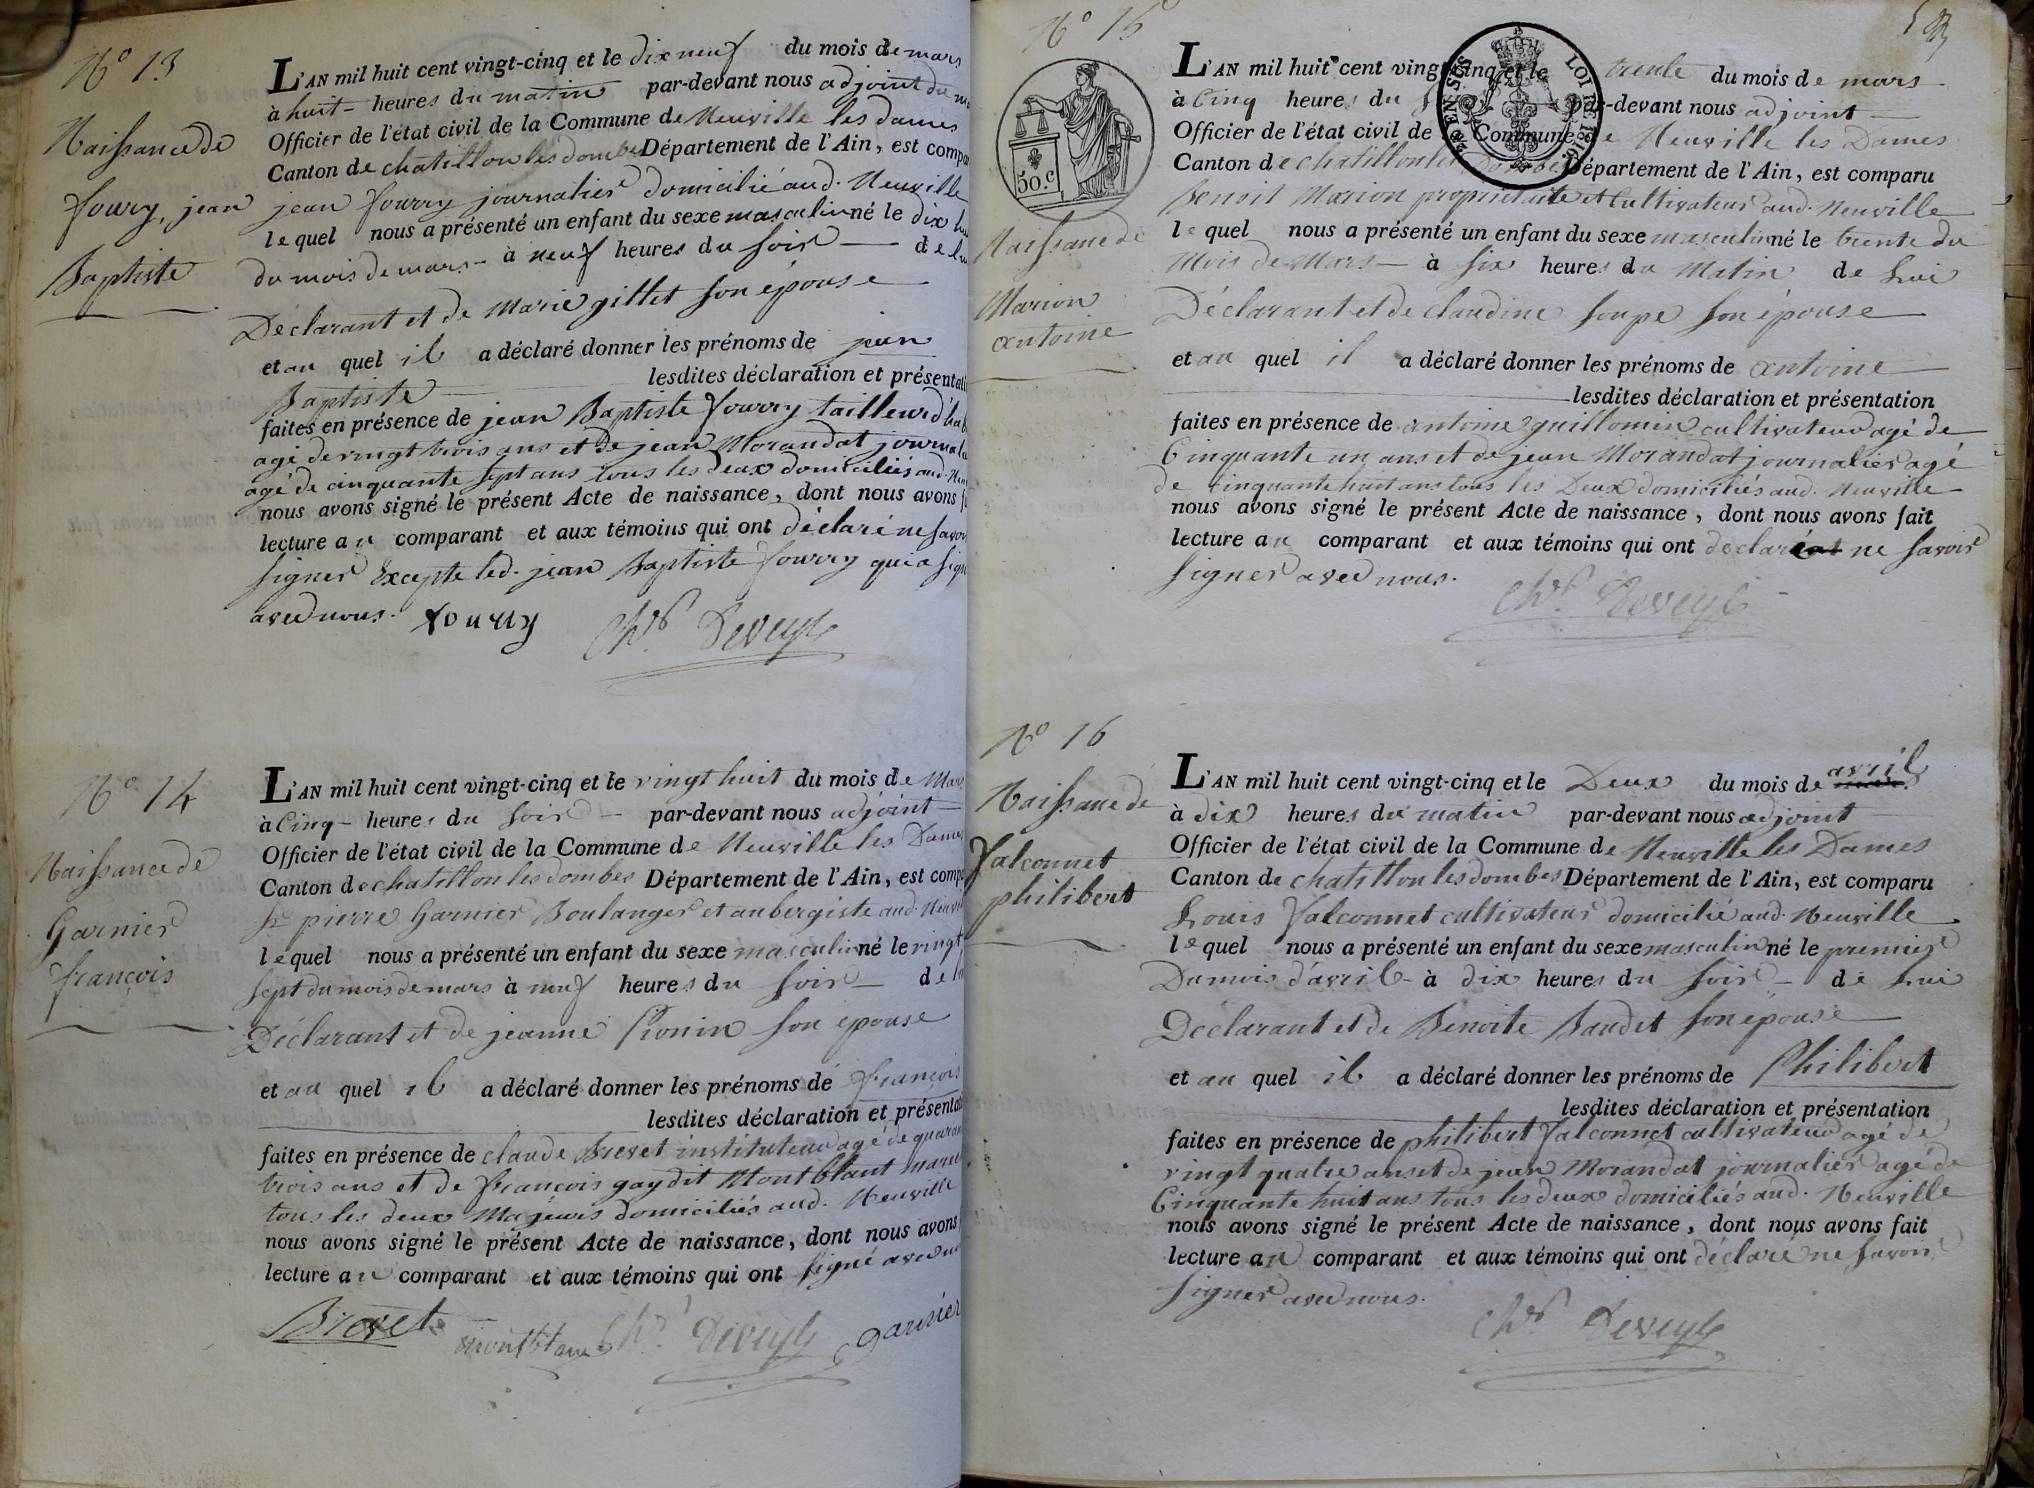 N° 13
Naissance de
fourry, jean
Baptiste
L'AN mil huit cent vingt-cinq et le dix neuf du mois de mars
à huit heures du matin par-devant nous adjoint du
Officier de l'état civil de la Commune de Neuville les dames
Canton de chatillon les dombes Département de l'Ain, est compa
jean fourry journalier domicilié aud. Neuville
lequel nous a présenté un enfant du sexe masculin né le dix
du mois de mars à neuf heures du soir de
Déclarant et de Marie gillet son épouse
et au quel il a déclaré donner les prénoms de jean
Baptiste lesdites déclaration et présentati
faites en présence de jean Baptiste fourry tailleur
agé de vingt trois ans et de jean Morandat journal
agé de cinquante sept ans tous les deux domiciliés aud.
nous avons signé le présent Acte de naissance, dont nous avons f
lecture au comparant et aux témoins qui ont déclaré ne savoir
signer Excepté led. jean Baptiste fourry qui a sign
avec nous. fourry Chr. Deveyle
N° 14
Naissance de
Garnier
françois
L'AN mil huit cent vingt-cinq et le vingt huit du mois de Mars
à Cinq heures du soir par-devant nous adjoint
Officier de l'état civil de la Commune de Neuville les Dames
Canton de chatillon les dombes Département de l'Ain, est compa
Sr. pierre Garnier Boulanger et aubergiste aud. Neuvi
lequel nous a présenté un enfant du sexe masculin né le vingt
sept du mois de mars à neuf heures du soir de
Déclarant et de jeanne son épouse
et au quel il a déclaré donner les prénoms de françois
lesdites déclaration et présentati
faites en présence de claude Brevet instituteur agé de quaran
trois ans et de françois gay dit Montblant
tous les deux Majeurs domiciliés aud. Neuville
nous avons signé le présent Acte de naissance, dont nous avons
lecture au comparant et aux témoins qui ont signé avec
Brevet Chr. Deveyle garnier
N° 15
Naissance de
Marion
antoine
50.c
EN SUS
LOI DE 1816
L'AN mil huit cent vingt-cinq et le trente du mois de mars
à Cinq heures du par-devant nous adjoint
Officier de l'état civil de la Commune de Neuville les Dames
Canton de chatillon les Dombes Département de l'Ain, est comparu
Benoit Marion propriétaire et Cultivateur aud. Neuville
lequel nous a présenté un enfant du sexe masculin né le trente du
Mois de Mars à six heures du Matin de Lui
Déclarant et de claudine soupe son épouse
et au quel il a déclaré donner les prénoms de antoine
lesdites déclaration et présentation
faites en présence de antoine guillomin cultivateur agé de
Cinquante un ans et de jean Morandat journalier agé
de cinquante huit ans tous les Deux domiciliés aud. Neuville
nous avons signé le présent Acte de naissance, dont nous avons fait
lecture au comparant et aux témoins qui ont declaré ne savoir
signer avec nous.
Chr. Deveyle
N° 16
Naissance de
falconnet
philibert
L'AN mil huit cent vingt-cinq et le Deux du mois de avril
à dix heures du matin par-devant nous adjoint
Officier de l'état civil de la Commune de Neuville les Dames
Canton de chatillon les dombes Département de l'Ain, est comparu
Louis falconnet cultivateur domicilié aud. Neuville
lequel nous a présenté un enfant du sexe masculin né le premier
Du mois d'avril à dix heures du soir de Lui
Déclarant et de Benoite Baudet son épouse
et au quel il a déclaré donner les prénoms de Philibert
lesdites déclaration et présentation
faites en présence de philibert falconnet cultivateur agé de
vingt quatre ans et de jean Morandat journalier agé de
Cinquante huit ans tous les deux domiciliés aud. Neuville
nous avons signé le présent Acte de naissance, dont nous avons fait
lecture au comparant et aux témoins qui ont déclaré ne savoir
signer avec nous.
Chr. Deveyle